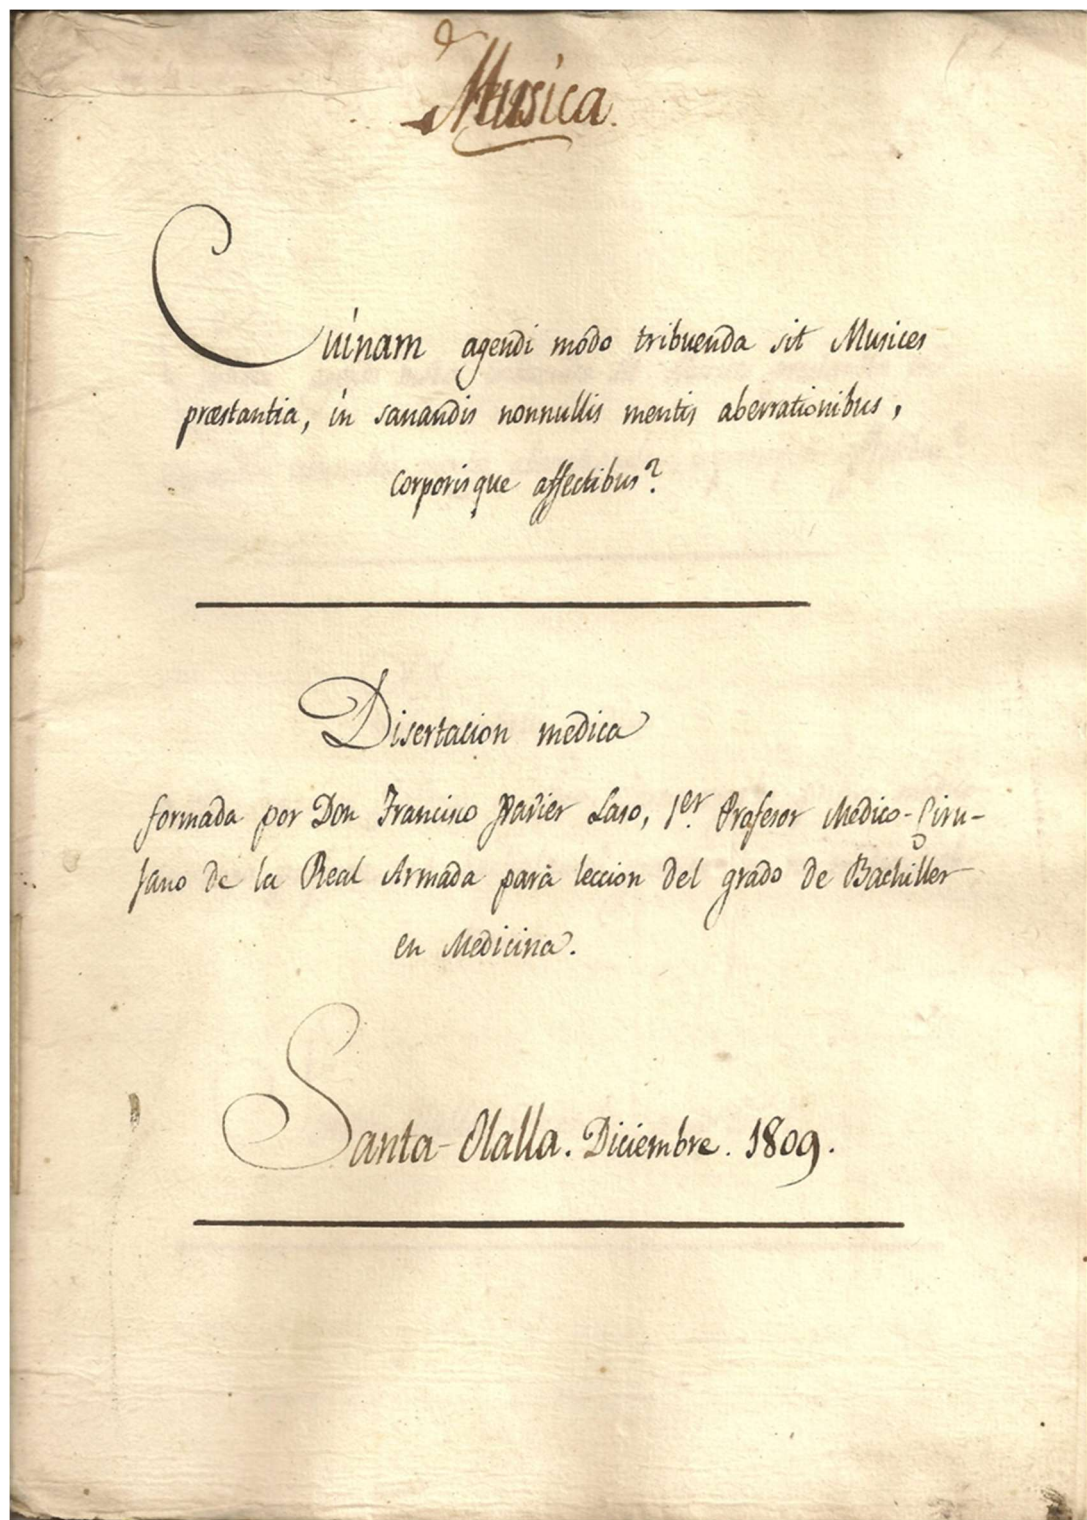 Musica.
Cuinam agendi modo tribuenda sit Musices
præstantia, in sanandis nonnullis mentis aberrationibus,
corporisque affectibus?
Disertacion medica
formada por Don Francisco Xavier Laso, 1.er Profesor Medico-Ciru-
jano de la Real Armada para leccion del grado de Bachiller
en Medicina.
Santa-Olalla. Diciembre. 1809.